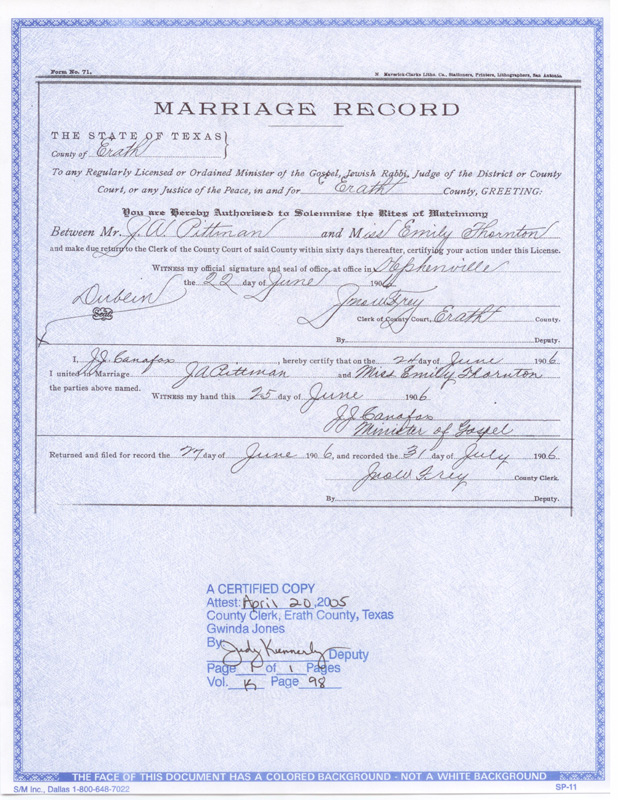 Form No. 71.
N Maverick-Clarke Litho. Co., Stationers, Printers, Lithographers, San Antonio.
MARRIAGE RECORD
THE STATE OF TEXAS
County of Erath
To any Regularly Licensed or Ordained Minister of the Gospel, Jewish Rabbi, Judge of the District or County
Court, or any Justice of the Peace, in and for Erath County, GREETING:
You are Hereby Authorized to Solemnize the Rites of Matrimony
Between Mr. J. A. Pittman and Miss Emily Thornton
and make due return to the Clerk of the County Court of said County within sixty days thereafter, certifying your action under this License.
WITNESS my official signature and seal of office, at office in Stephenville
the 22 day of June 1906
Dublin
Seal
Jno W Frey
Clerk of County Court, Erath County.
By Deputy.
I, JJ Canafax, hereby certify that on the 24 day of June 1906
I united in Marriage J A Pittman and Miss Emily Thornton
the parties above named.
WITNESS my hand this 25 day of June 1906
JJ Canafax
Minister of Gospel
Returned and filed for record the 27 day of June 1906, and recorded the 31 day of July 1906.
Jno W Frey County Clerk.
By Deputy.
A CERTIFIED COPY
Attest: April 20, 2005
County Clerk, Erath County, Texas
Gwinda Jones
By Judy Kennerly Deputy
Page 1 of 1 Pages
Vol. K Page 98
THE FACE OF THIS DOCUMENT HAS A COLORED BACKGROUND - NOT A WHITE BACKGROUND
S/M Inc., Dallas 1-800-648-7022
SP-11